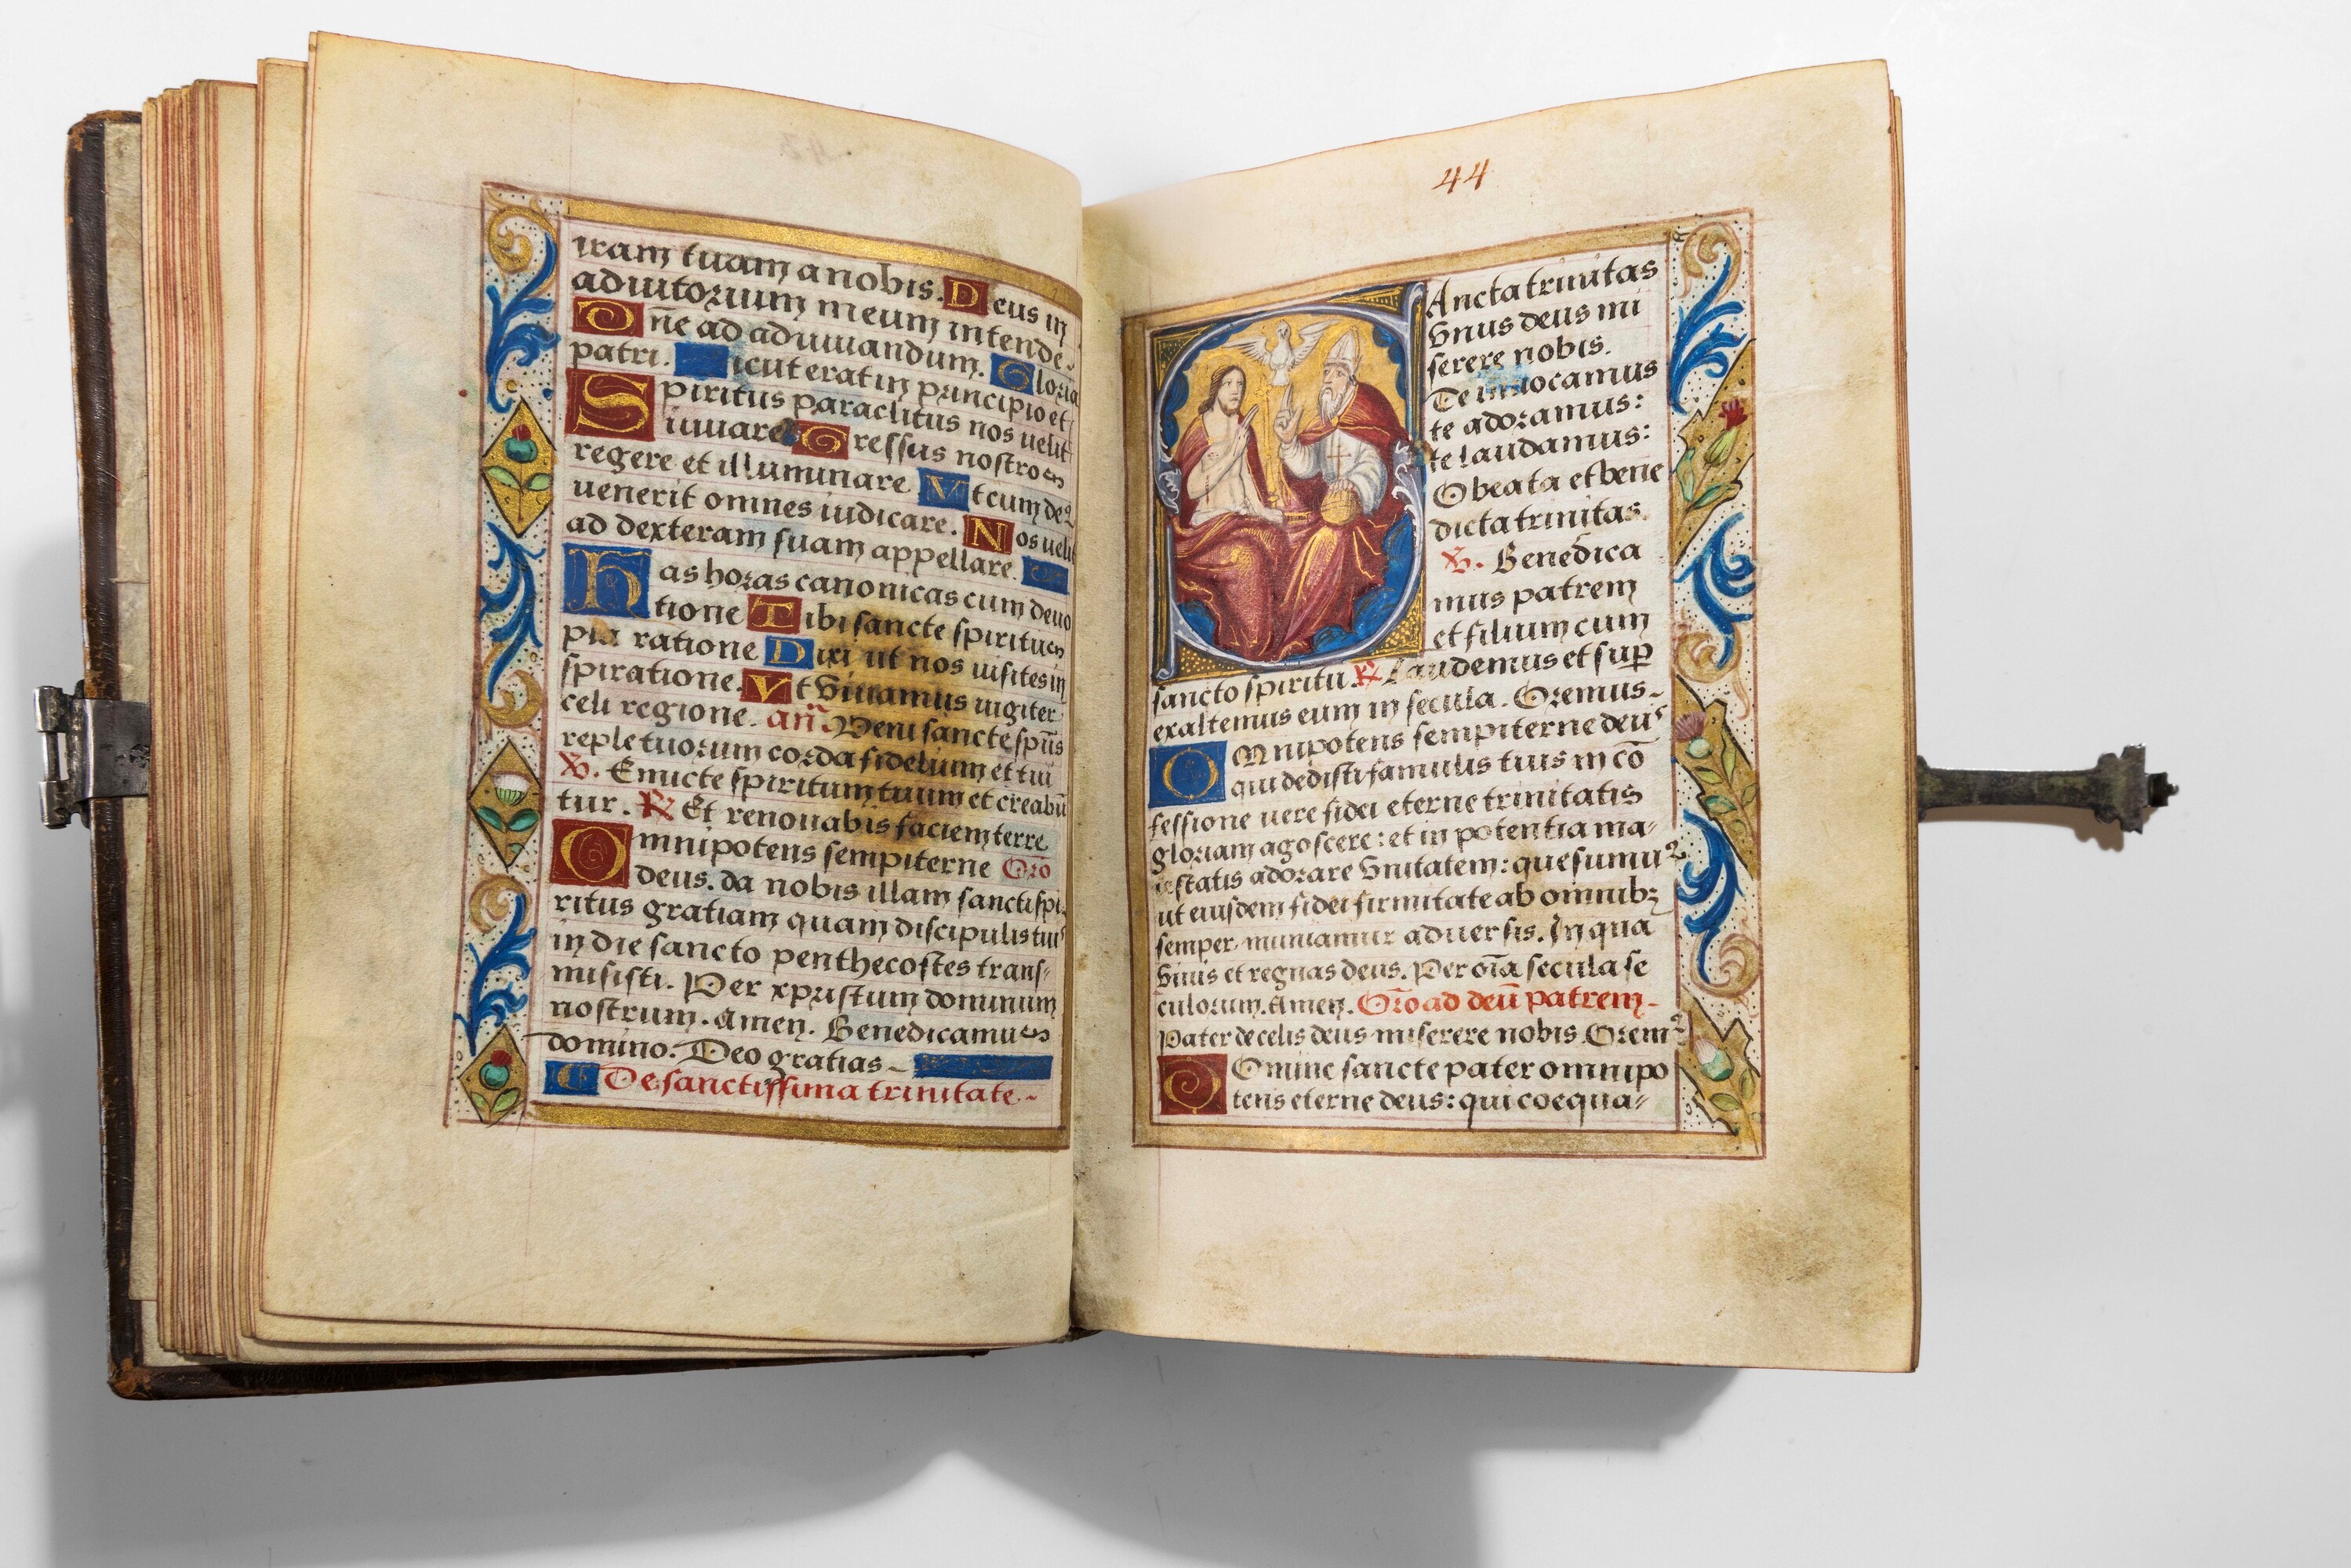 iram tuam a nobis. Deus in
adiutorium meum intende.
Dñe ad adiuuandum. Gloria
patri. Sicut erat in principio et
Spiritus paraclitus nos uelit
iuuare Gressus nostros
regere et illuminare Vt cum de
uenerit omnes iudicare. Nos uelit
ad dexteram suam appellare.
Has horas canonicas cum deuo
tione Tibi sancte spiritus
pia ratione Dixi ut nos uisites in
spiratione. Vt viuamus iugiter
celi regione. añ. Veni sancte spũs
reple tuorum corda fidelium et tui
℣. Emicte spiritum tuum et creabũ
tur. ℟ Et renouabis faciem terre
Omnipotens sempiterne Oro
deus. da nobis illam sancti spi
ritus gratiam quam discipulis tuis
in die sancto penthecostes trans
misisti. Per xpristum dominum
nostrum. amen. Benedicamus
domino. Deo gratias
De sanctissima trinitate
44
Sancta trinitas
vnus deus mi
serere nobis.
Te inuocamus
te adoramus:
te laudamus:
O beata et bene
dicta trinitas.
℣. Benedica
mus patrem
et filium cum
sancto spiritu. ℟ Laudemus et sup
exaltemus eum in secula. Oremus
OMnipotens sempiterne deus
qui dedisti famulis tuis in cõ
fessione uere fidei eterne trinitatis
gloriam agoscere: et in potentia ma
iestatis adorare vnitatem: quesumus
ut eiusdem fidei firmitate ab omnibz
semper muniamur aduersis. In qua
viuis et regnas deus. Per oĩa secula se
culorum. Amen. Oro ad deũ patrem
Pater de celis deus miserere nobis Orem9
Domine sancte pater omnipo
tens eterne deus: qui coequa